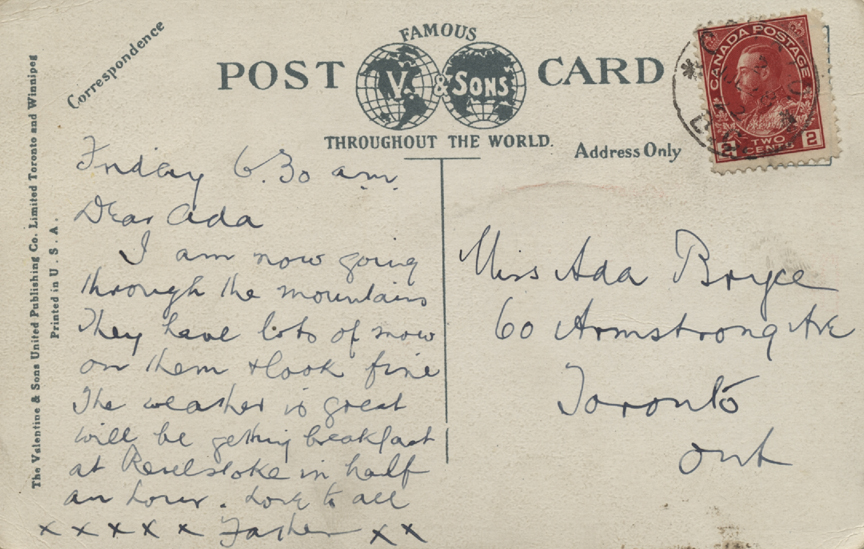 Correspondence
FAMOUS
POST CARD
V. & SONS
THROUGHOUT THE WORLD.
Address Only
CANADA POSTAGE
2 TWO CENTS 2
The Valentine & Sons United Publishing Co. Limited Toronto and Winnipeg
Printed in U. S. A.
Friday 6.30 a.m.
Dear Ada
I am now going
through the mountains
They have lots of snow
on them & look fine
The weather is great
will be getting breakfast
at Revelstoke in half
an hour. Love to all
x x x x x Father x x
Miss Ada Bryce
60 Armstrong Ave
Toronto
Ont